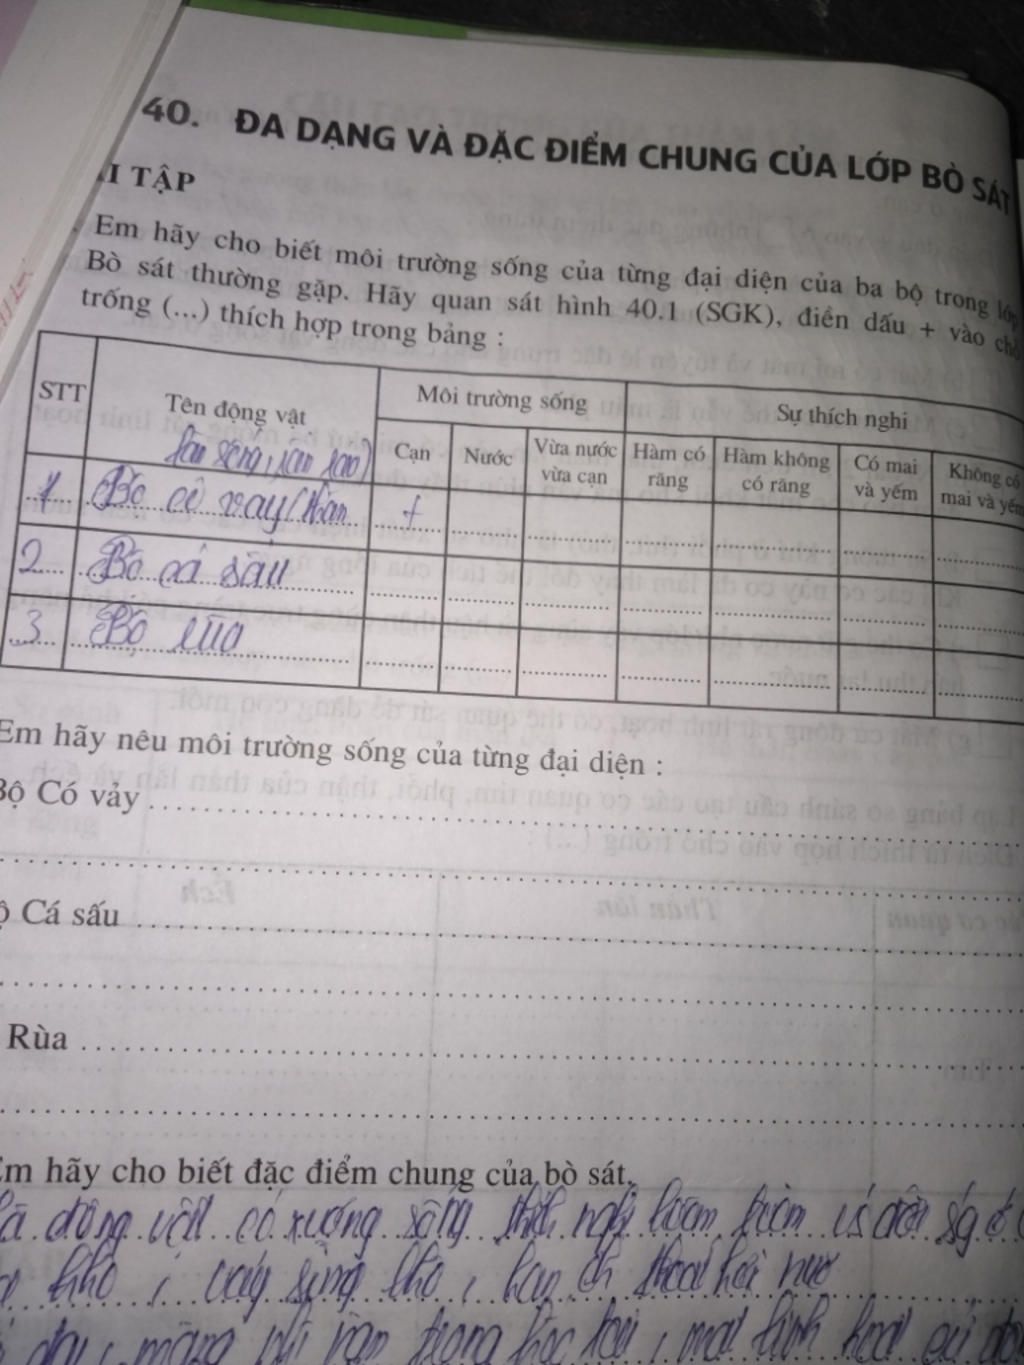 40. ĐA DẠNG VÀ ĐẶC ĐIỂM CHUNG CỦA LỚP BÒ SÁT
I TẬP
Em hãy cho biết môi trường sống của từng đại diện của ba bộ trong lớp
Bò sát thường gặp. Hãy quan sát hình 40.1 (SGK), điền dấu + vào chỗ
trống (...) thích hợp trong bảng :
STT
Tên động vật
Môi trường sống
Sự thích nghi
Cạn
Nước
Vừa nước vừa cạn
Hàm có răng
Hàm không có răng
Có mai và yếm
Không có mai và yếm
1 Bộ có vảy (thằn +
2 Bộ cá sấu
3 Bộ rùa
Em hãy nêu môi trường sống của từng đại diện :
Bộ Có vảy
ộ Cá sấu
Rùa
Em hãy cho biết đặc điểm chung của bò sát.
là động vật có xương sống thích nghi
khô, vảy sừng khô,